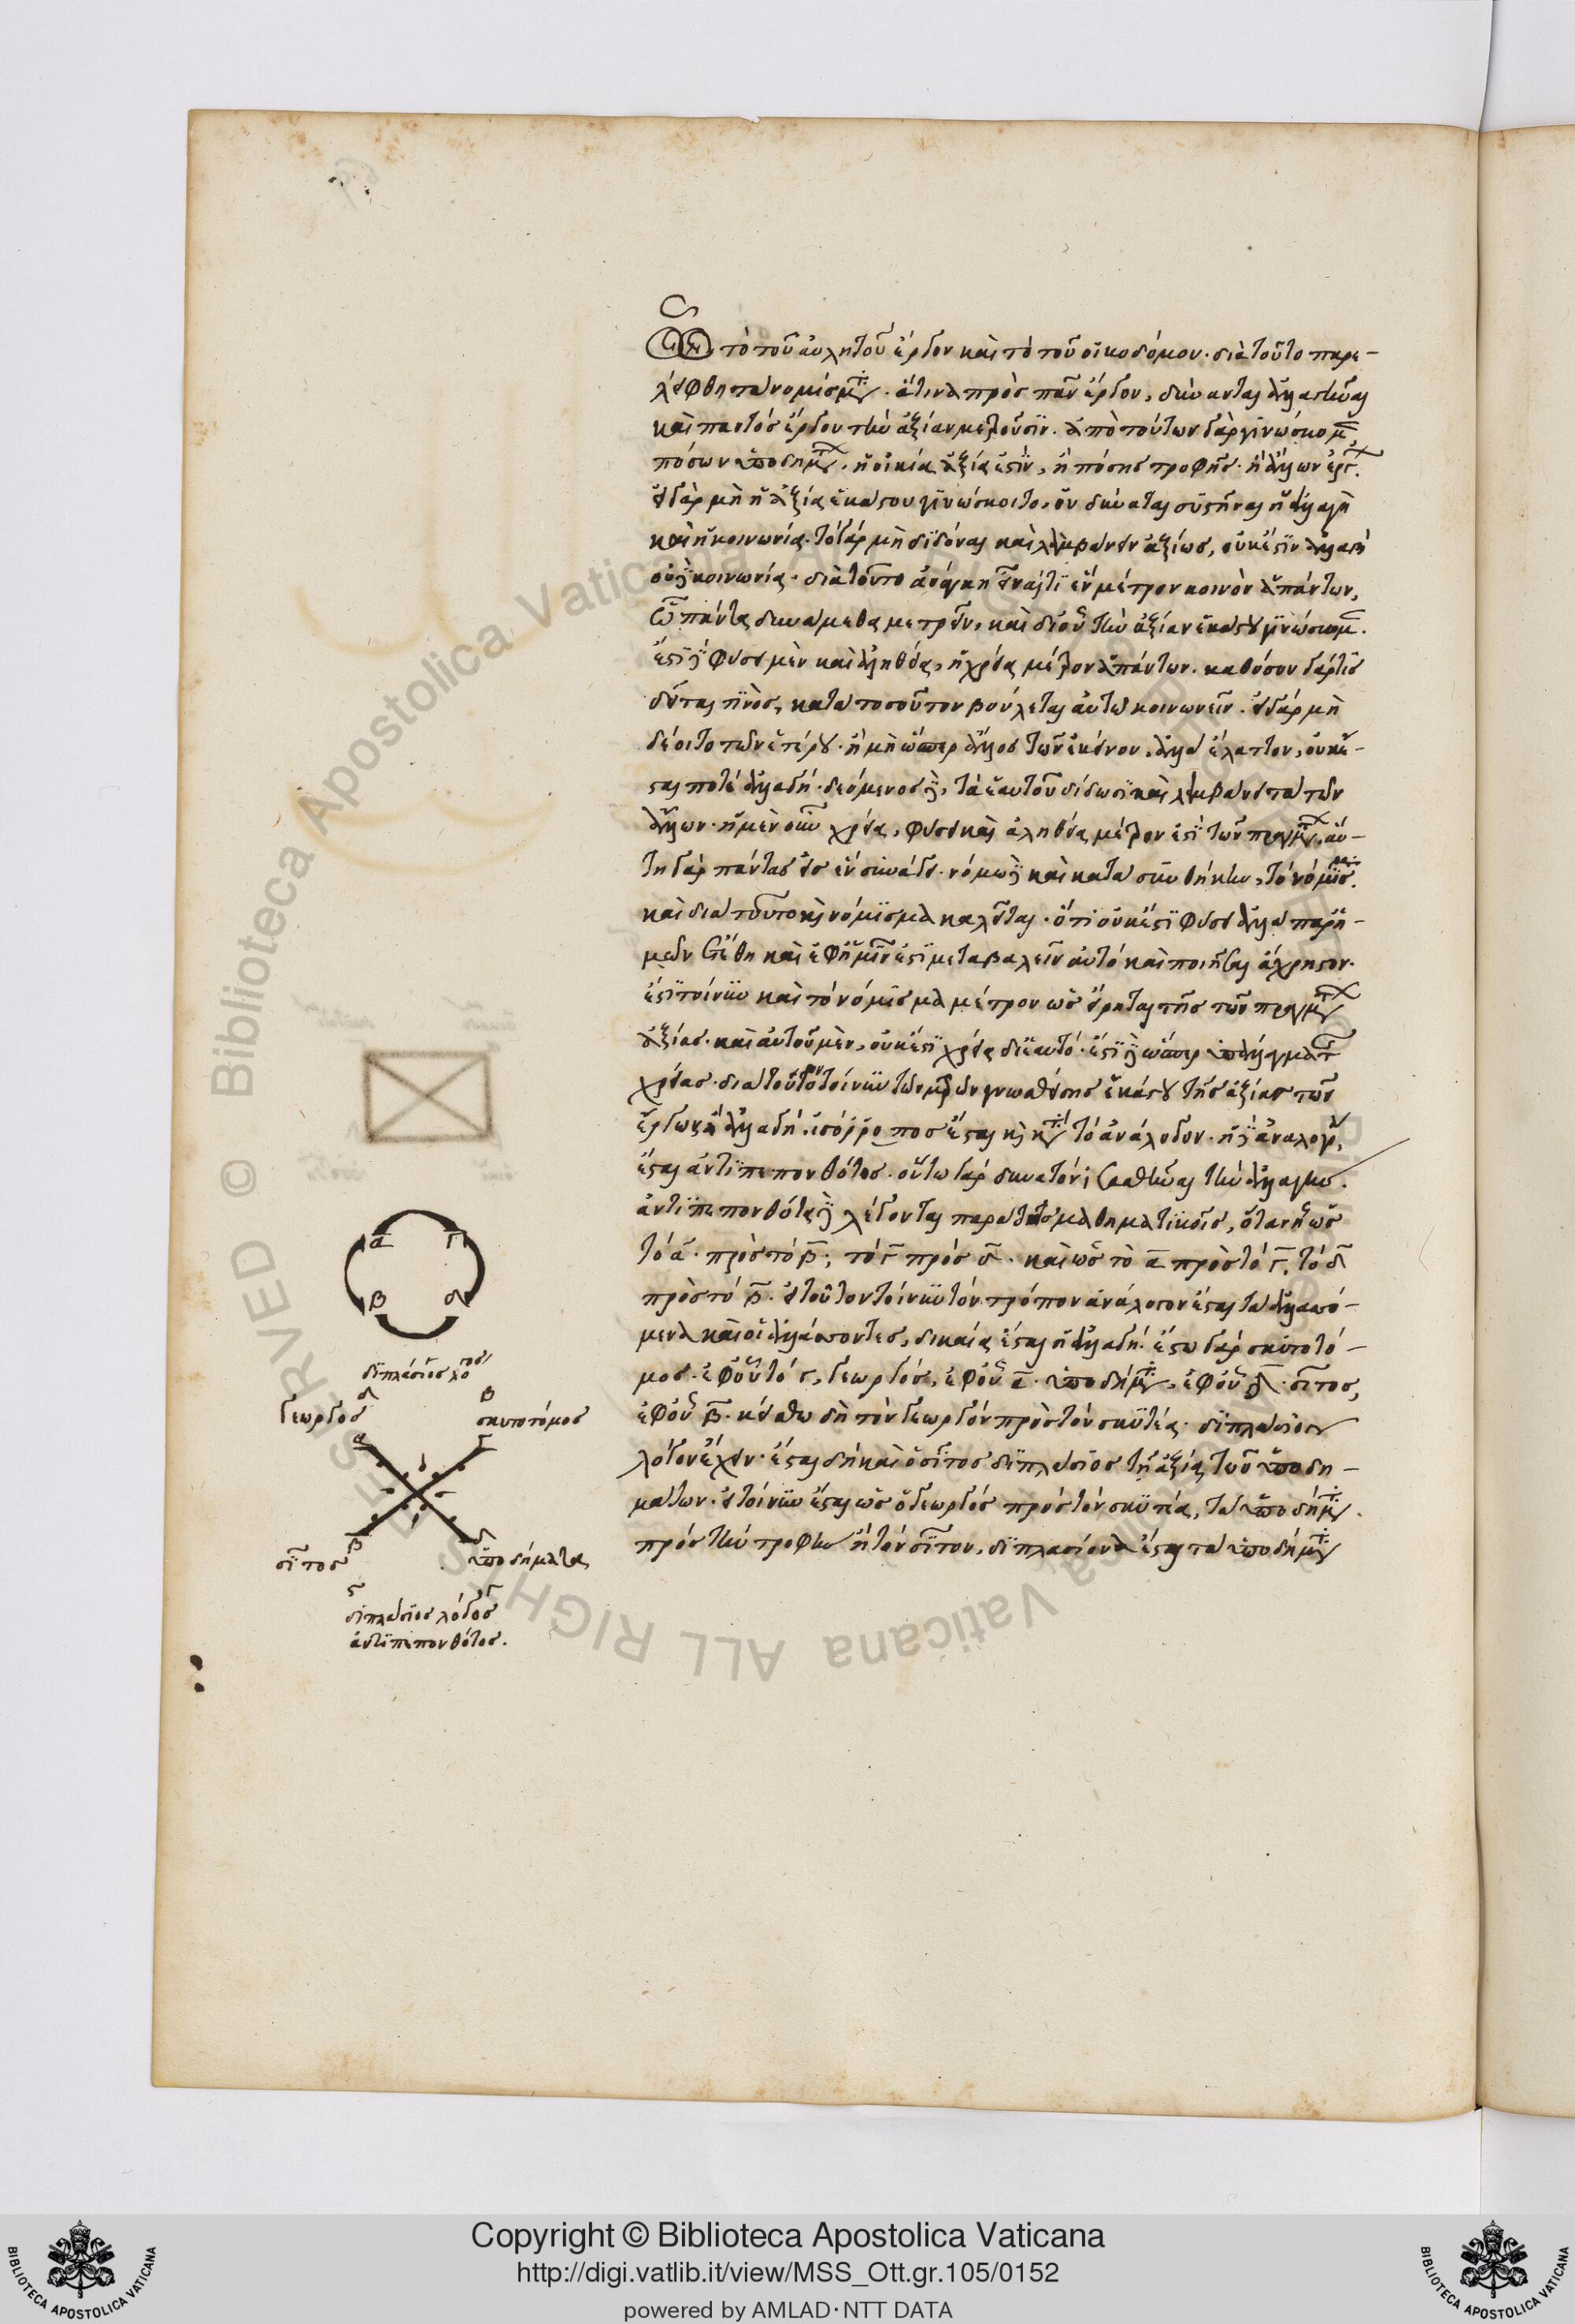 τὸ τοῦ αὐλητοῦ ἔργον καὶ τὸ τοῦ οἰκοδόμου. διὰ τοῦτο παρε-
λείφθη τὰ νομίσματα. ἅτινα πρὸς πᾶν ἔργον, δύνανται ἀλλαγῆναι
καὶ παντὸς ἔργου τὴν ἀξίαν μετροῦσιν. ἀπὸ τούτων γὰρ γινώσκομεν
πόσων ὑποδημάτων, ἡ οἰκία ἀξία ἐστὶν, ἢ πόσης τροφῆς. ἢ ἄλλων ἔργων.
εἰ γὰρ μὴ ἡ ἀξία ἑκάστου γινώσκοιτο, οὐ δύναται συστῆναι ἡ ἀλλαγὴ
καὶ ἡ κοινωνία. τὸ γὰρ μὴ διδόναι καὶ λαμβάνειν ἀξίως, οὐκ ἔστιν ἀλλαγὴ
οὐδὲ κοινωνία. διὰ τοῦτο ἀνάγκη εἶναί τι ἓν μέτρον κοινὸν ἁπάντων,
ᾧ πάντα δυνάμεθα μετρεῖν, καὶ δι' οὗ τὴν ἀξίαν ἑκάστου γινώσκομεν.
ἔστι δὲ φύσει μὲν καὶ ἀληθείᾳ, ἡ χρεία μέτρον ἁπάντων. καθόσον γάρ τις
δεῖταί τινος, κατὰ τοσοῦτον βούλεται αὐτῷ κοινωνεῖν. εἰ γὰρ μὴ
δέοιτο τῶν ἑτέρου. ἢ μὴ ὥσπερ ἄλλος τῶν ἐκείνου, ἀλλ' ἔλαττον, οὐκ ἔ-
σται ποτὲ ἀλλαγή. δεόμενος δὲ, τὰ ἑαυτοῦ δίδωσι καὶ λαμβάνει τὰ τῶν
ἄλλων. ἡ μὲν οὖν χρεία, φύσει καὶ ἀληθείᾳ μέτρον ἐστὶ τῶν πραγμάτων. αὕ-
τη γὰρ πάντας εἰς ἓν συνάγει. νόμῳ δὲ καὶ κατὰ συνθήκην, τὸ νόμισμα.
καὶ διὰ τοῦτο καὶ νόμισμα καλεῖται. ὅτι οὐκ ἔστι φύσει ἀλλὰ παρ' ἡ-
μῶν ἐτέθη καὶ ἐφ' ἡμῖν ἐστι μεταβαλεῖν αὐτὸ καὶ ποιῆσαι ἄχρηστον.
ἔστι τοίνυν καὶ τὸ νόμισμα μέτρον ὡς εἴρηται τῆς τῶν πραγμάτων
ἀξίας. καὶ αὐτοῦ μὲν, οὐκ ἔστι χρεία δι' ἑαυτό. ἔστι δὲ ὥσπερ ὑπάλλαγμα τῆς
χρείας. διὰ τούτων τοίνυν τῶν μέτρων γνωσθείσης ἑκάστου τῆς ἀξίας τῶν
ἔργων, ἡ ἀλλαγὴ ἰσόρροπος ἔσται καὶ κατὰ τὸ ἀνάλογον. ἡ δὲ ἀναλογία,
ἔσται ἀντιπεπονθότως. οὕτω γὰρ δυνατὸν ἰσασθῆναι τὴν ἀλλαγήν.
ἀντιπεπονθότα δὲ λέγονται παρὰ τοῖς μαθηματικοῖς, ὅταν ᾖ ὡς
τὸ α πρὸς τὸ β, τὸ γ πρὸς δ. καὶ ὡς τὸ α πρὸς τὸ γ, τὸ δ
πρὸς τὸ β. εἰ τοῦτον τοίνυν τὸν τρόπον ἀνάλογον ἔσται τὰ ἀλλασσό-
μενα καὶ οἱ ἀλλάσσοντες, δικαία ἔσται ἡ ἀλλαγή. ἔστω γὰρ σκυτοτό-
μος. ἐφ' οὗ τὸ γ, γεωργὸς, ἐφ' οὗ α. ὑποδήματα, ἐφ' οὗ δ. σῖτος,
ἐφ' οὗ β. κείσθω δὴ τὸν γεωργὸν πρὸς τὸν σκυτέα. διπλάσιον
λόγον ἔχειν. ἔσται δὴ καὶ ὁ σῖτος διπλάσιος τῇ ἀξίᾳ τῶν ὑποδη-
μάτων. εἰ τοίνυν ἔσται ὡς ὁ γεωργὸς πρὸς τὸν σκυτέα, τὰ ὑποδήματα
πρὸς τὴν τροφὴν ἢ τὸν σῖτον, διπλασίονα ἔσται τὰ ὑποδήματα
α γ
β δ
διπλάσιος λόγος
γεωργός δ β σκυτοτόμος
α γ
β δ
σῖτος ὑποδήματα
διπλάσιος λόγος
ἀντιπεπονθότως.
© Biblioteca Apostolica Vaticana ALL RIGHTS RESERVED
Copyright © Biblioteca Apostolica Vaticana
http://digi.vatlib.it/view/MSS_Ott.gr.105/0152
powered by AMLAD·NTT DATA
BIBLIOTECA APOSTOLICA VATICANA
BIBLIOTECA APOSTOLICA VATICANA